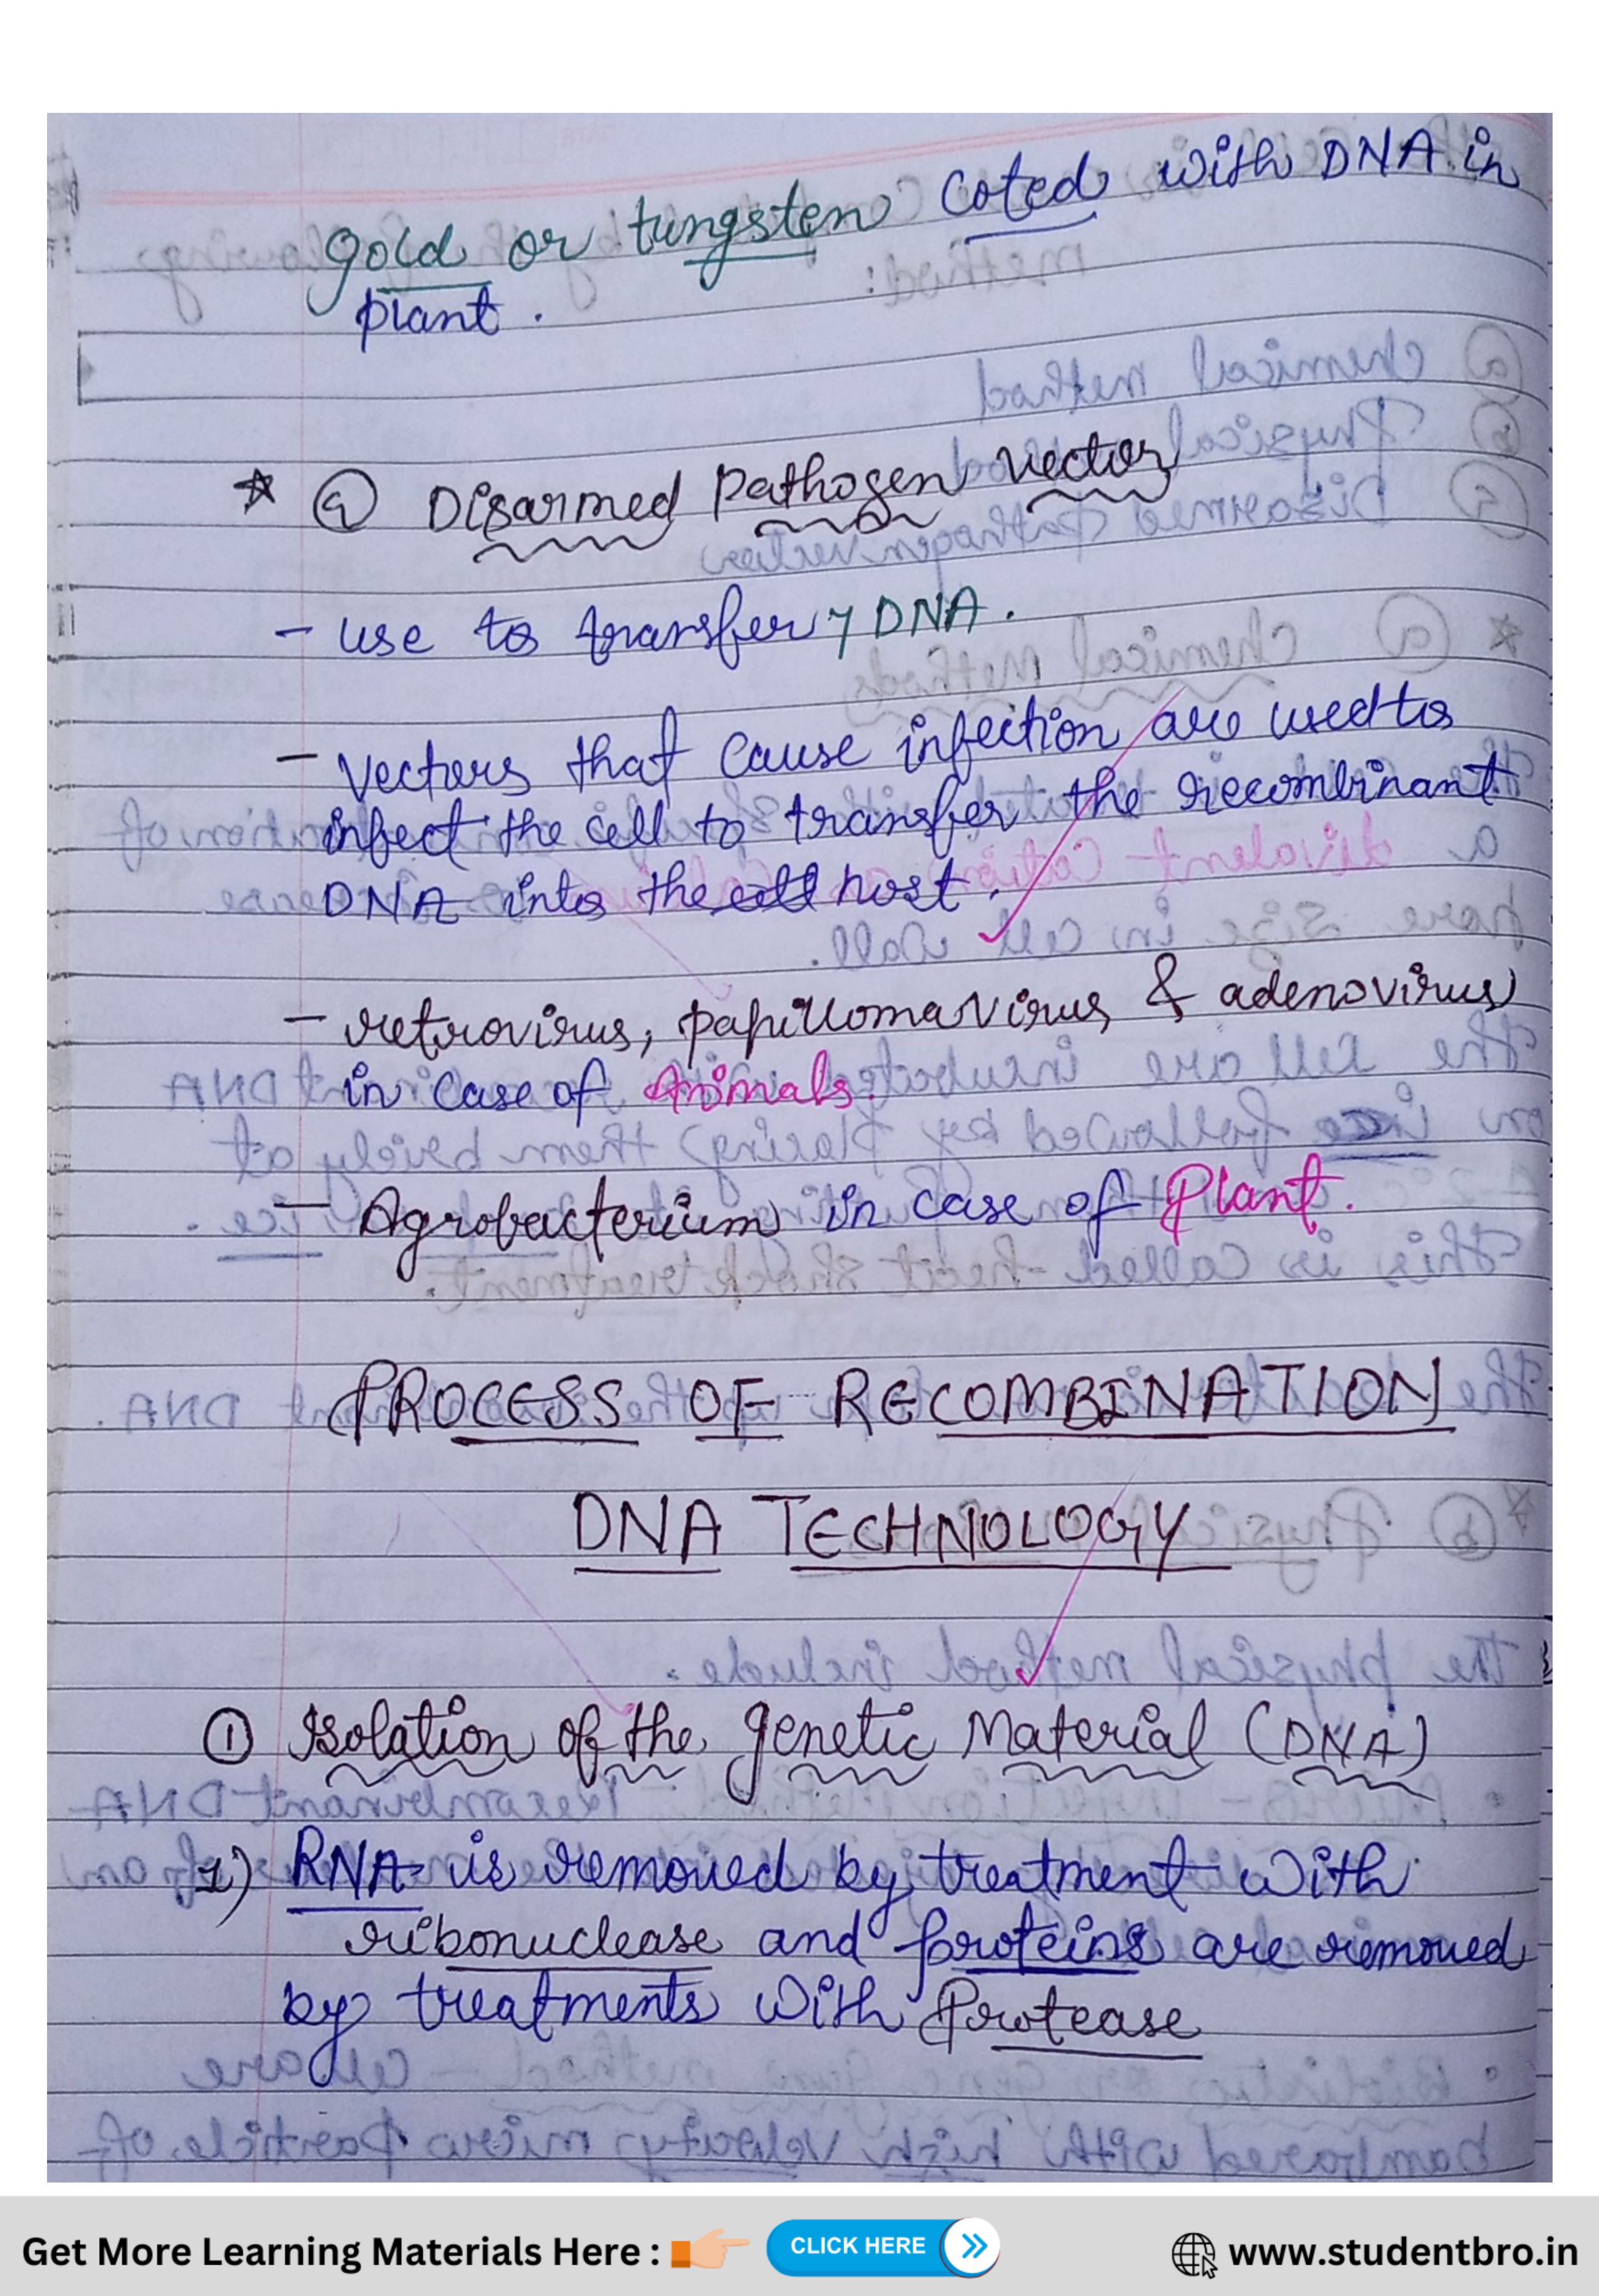 gold or tungsten coted with DNA in
plant.
* Disarmed pathogen vector
- use to transfer DNA.
- vectors that cause infection are used to
infect the cell to transfer the recombinant
DNA into the cell host.
- retrovirus, papillomavirus & adenovirus
in case of Animals.
- Agrobacterium in case of Plant.
PROCESS OF RECOMBINATION
DNA TECHNOLOGY
① Isolation of the genetic Material (DNA)
1) RNA is removed by treatment with
ribonuclease and proteins are removed
by treatments with Protease
Get More Learning Materials Here : CLICK HERE www.studentbro.in